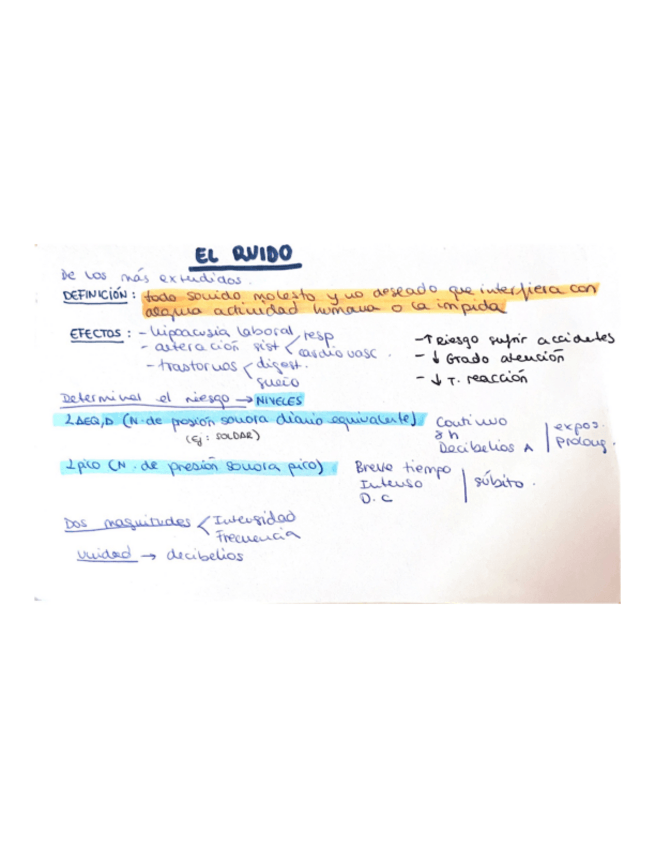 EL RUIDO
De los más extendidos.
DEFINICIÓN: todo sonido molesto y no deseado que interfiera con
alguna actividad humana o la impida
EFECTOS: - hipoacusia laboral
- alteración sist < resp
cardiovasc.
- trastornos < digest.
sueño
- ↑ riesgo sufrir accidentes
- ↓ Grado atención
- ↓ T. reacción
Determinar el riesgo → NIVELES
LAEQ,D (N. de presión sonora diario equivalente)
(Ej: SOLDAR)
Continuo
8 h
Decibelios A
expos.
prolong.
Lpico (N. de presión sonora pico)
Breve tiempo
Intenso
D.C
súbito.
Dos magnitudes < Intensidad
Frecuencia
Unidad → decibelios